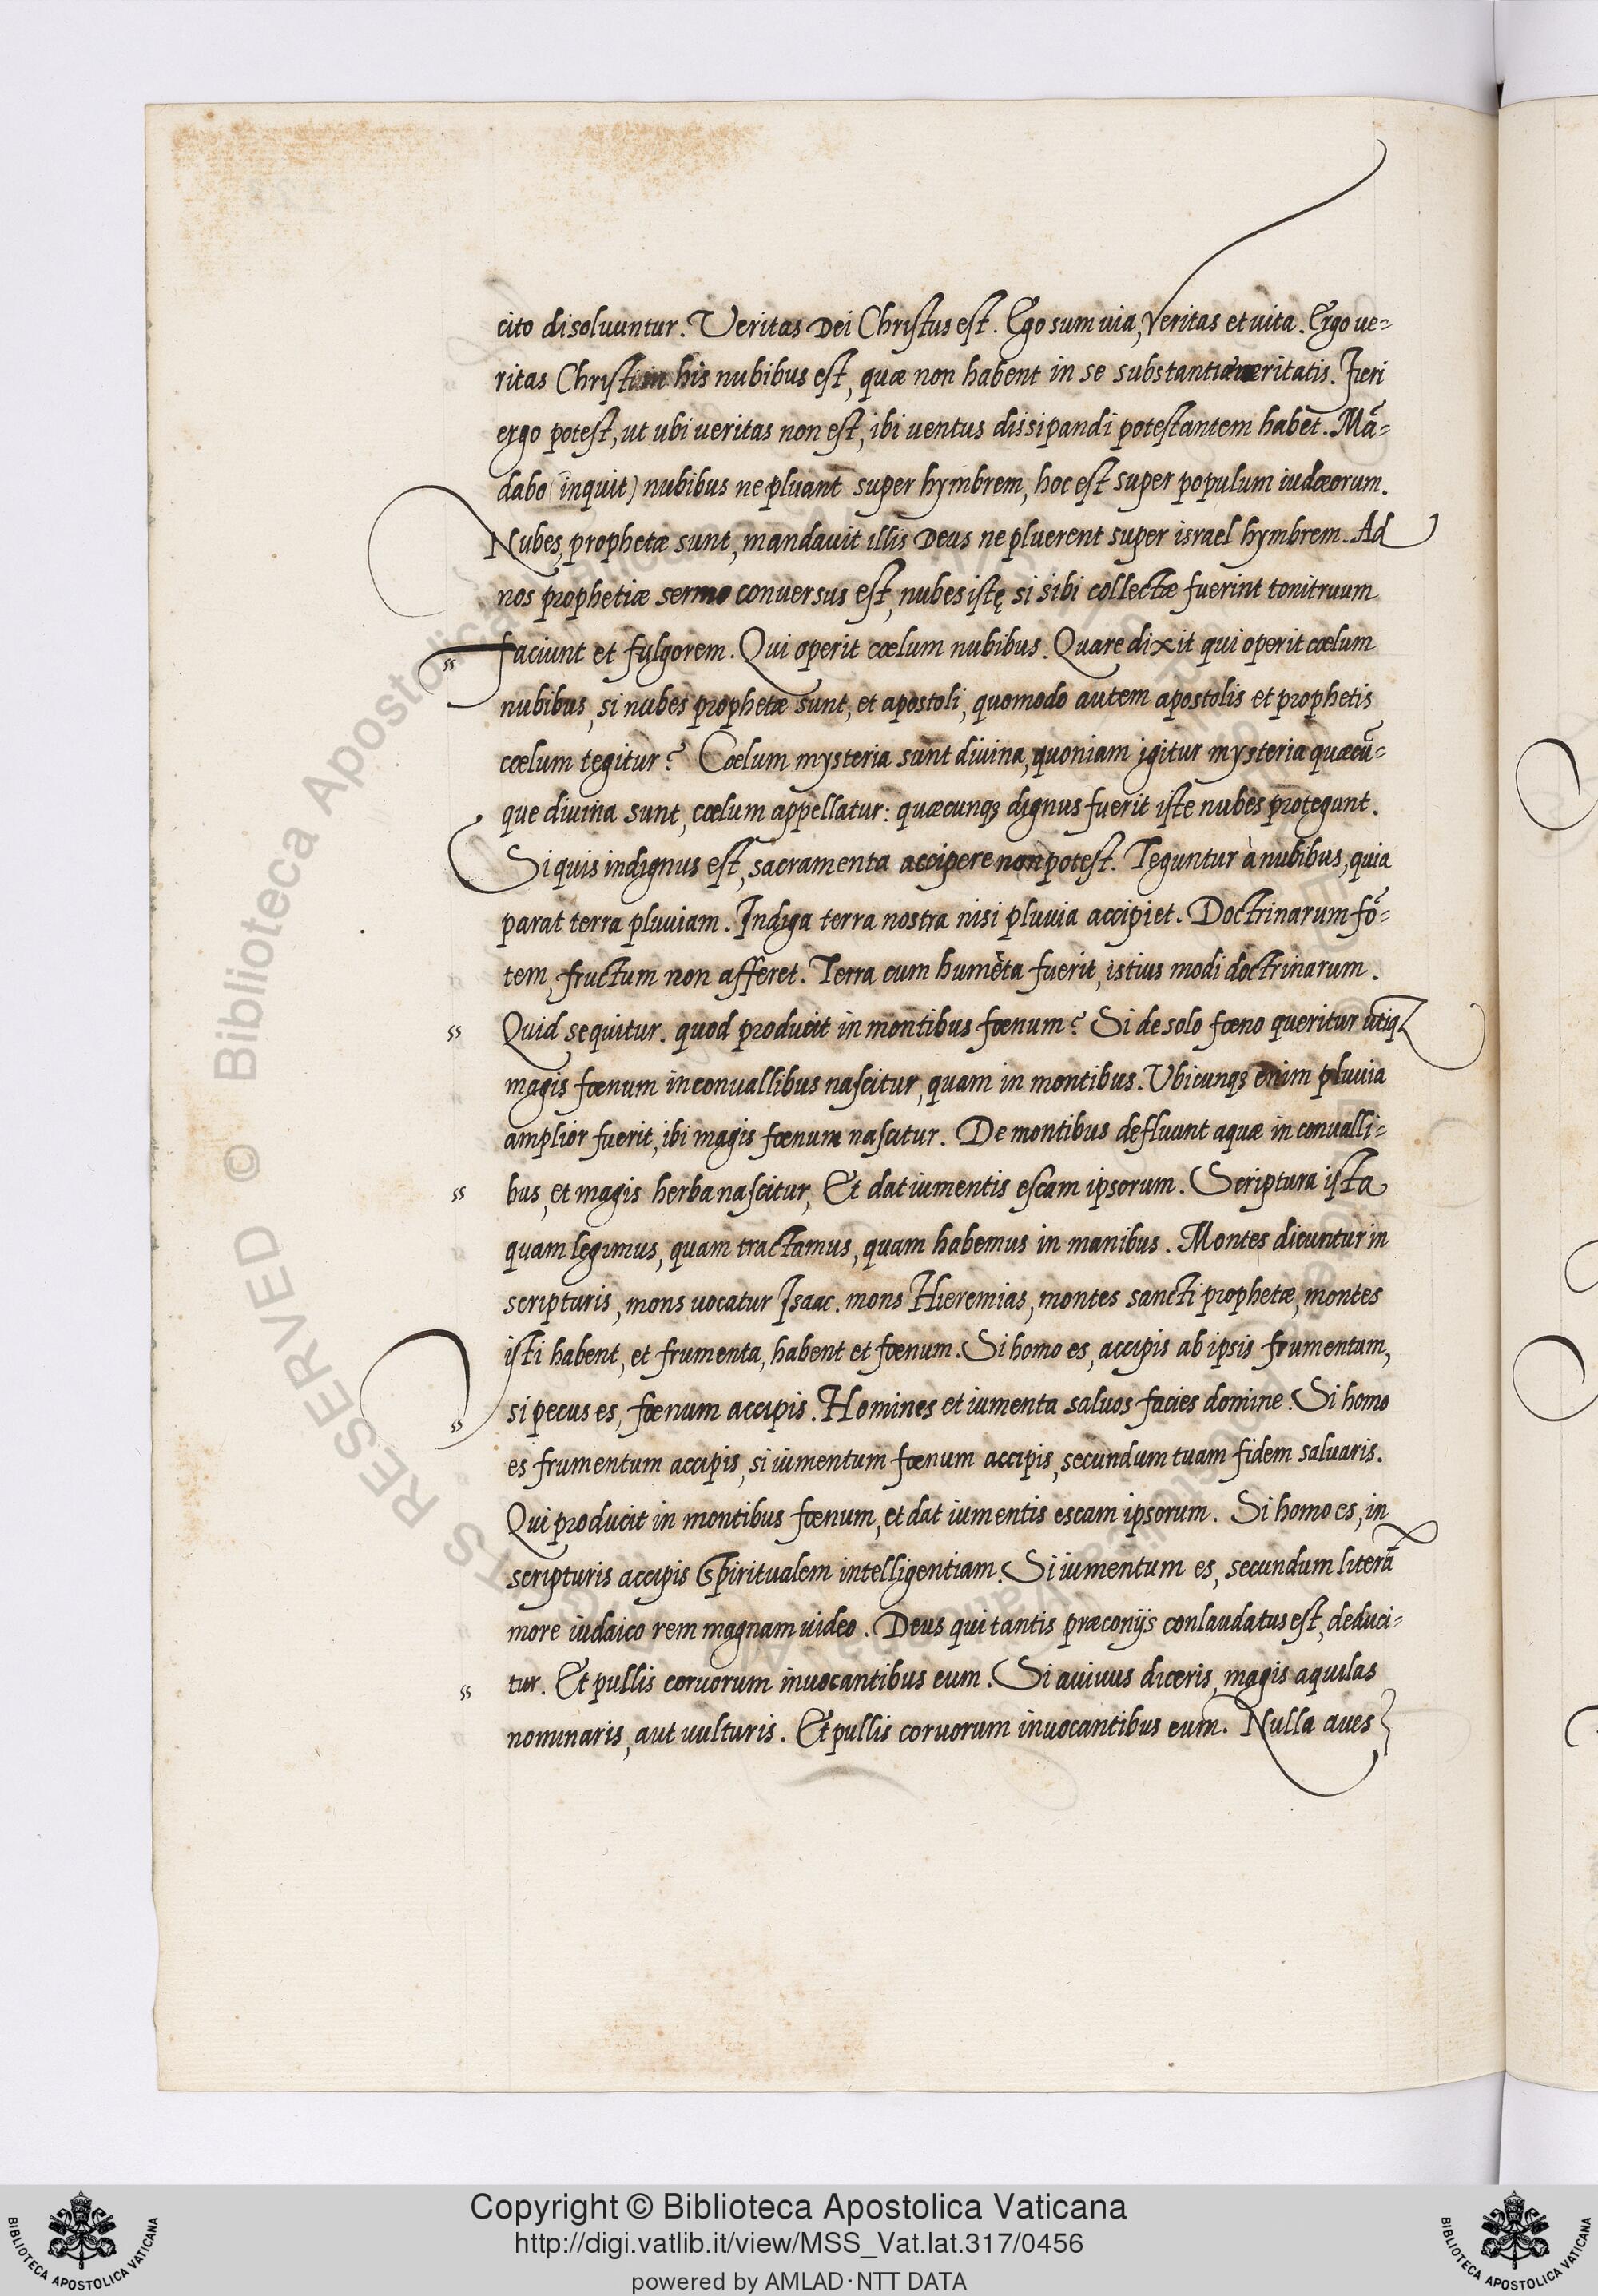 cito disoluuntur. Veritas Dei Christus est. Ego sum uia, veritas et uita. Ergo ue=
ritas Christi in his nubibus est, quæ non habent in se substantiã ueritatis. Fieri
ergo potest, ut ubi ueritas non est, ibi uentus dissipandi potestantem habet. Mã=
dabo (inquit) nubibus ne pluant super hymbrem, hoc est super populum iudæorum.
Nubes, prophetæ sunt, mandauit illis Deus ne pluerent super israel hymbrem. Ad
nos prophetiæ sermo conuersus est, nubes istę si sibi collectæ fuerint tonitruum
faciunt et fulgorem. Qui operit cœlum nubibus. Quare dixit qui operit cœlum
nubibus, si nubes prophetæ sunt, et apostoli, quomodo autem apostolis et prophetis
cœlum tegitur? Cœlum mysteria sunt diuina, quoniam igitur mysteria quæcũ=
que diuina sunt, cœlum appellatur: quæcunqꝫ dignus fuerit iste nubes protegunt.
Si quis indignus est, sacramenta accipere non potest. Teguntur à nubibus, quia
parat terra pluuiam. Indiga terra nostra nisi pluuia accipiet. Doctrinarum fõ=
tem, fructum non afferet. Terra cum humeta fuerit, istius modi doctrinarum.
ss Quid sequitur. quod producit in montibus fœnum? Si de solo fœno queritur utiqꝫ
magis fœnum in conuallibus nascitur, quam in montibus. Vbicunqꝫ enim pluuia
amplior fuerit, ibi magis fœnum nascitur. De montibus defluunt aquæ in conualli=
ss bus, et magis herba nascitur, Et dat iumentis escam ipsorum. Scriptura ista
quam legimus, quam tractamus, quam habemus in manibus. Montes dicuntur in
scripturis, mons uocatur Isaac. mons Hieremias, montes sancti prophetæ, montes
isti habent, et frumenta, habent et fœnum. Si homo es, accipis ab ipsis frumentum,
ss si pecus es, fœnum accipis. Homines et iumenta saluos facies domine. Si homo
es frumentum accipis, si iumentum fœnum accipis, secundum tuam fidem saluaris.
Qui producit in montibus fœnum, et dat iumentis escam ipsorum. Si homo es, in
scripturis accipis spiritualem intelligentiam. Si iumentum es, secundum literã
more iudaico rem magnam uideo. Deus qui tantis præconijs conlaudatus est, deduci=
ss tur. Et pullis coruorum inuocantibus eum. Si auiuus diceris, magis aquilas
nominaris, aut uulturis. Et pullis coruorum inuocantibus eum. Nulla aues
Copyright © Biblioteca Apostolica Vaticana
http://digi.vatlib.it/view/MSS_Vat.lat.317/0456
powered by AMLAD·NTT DATA